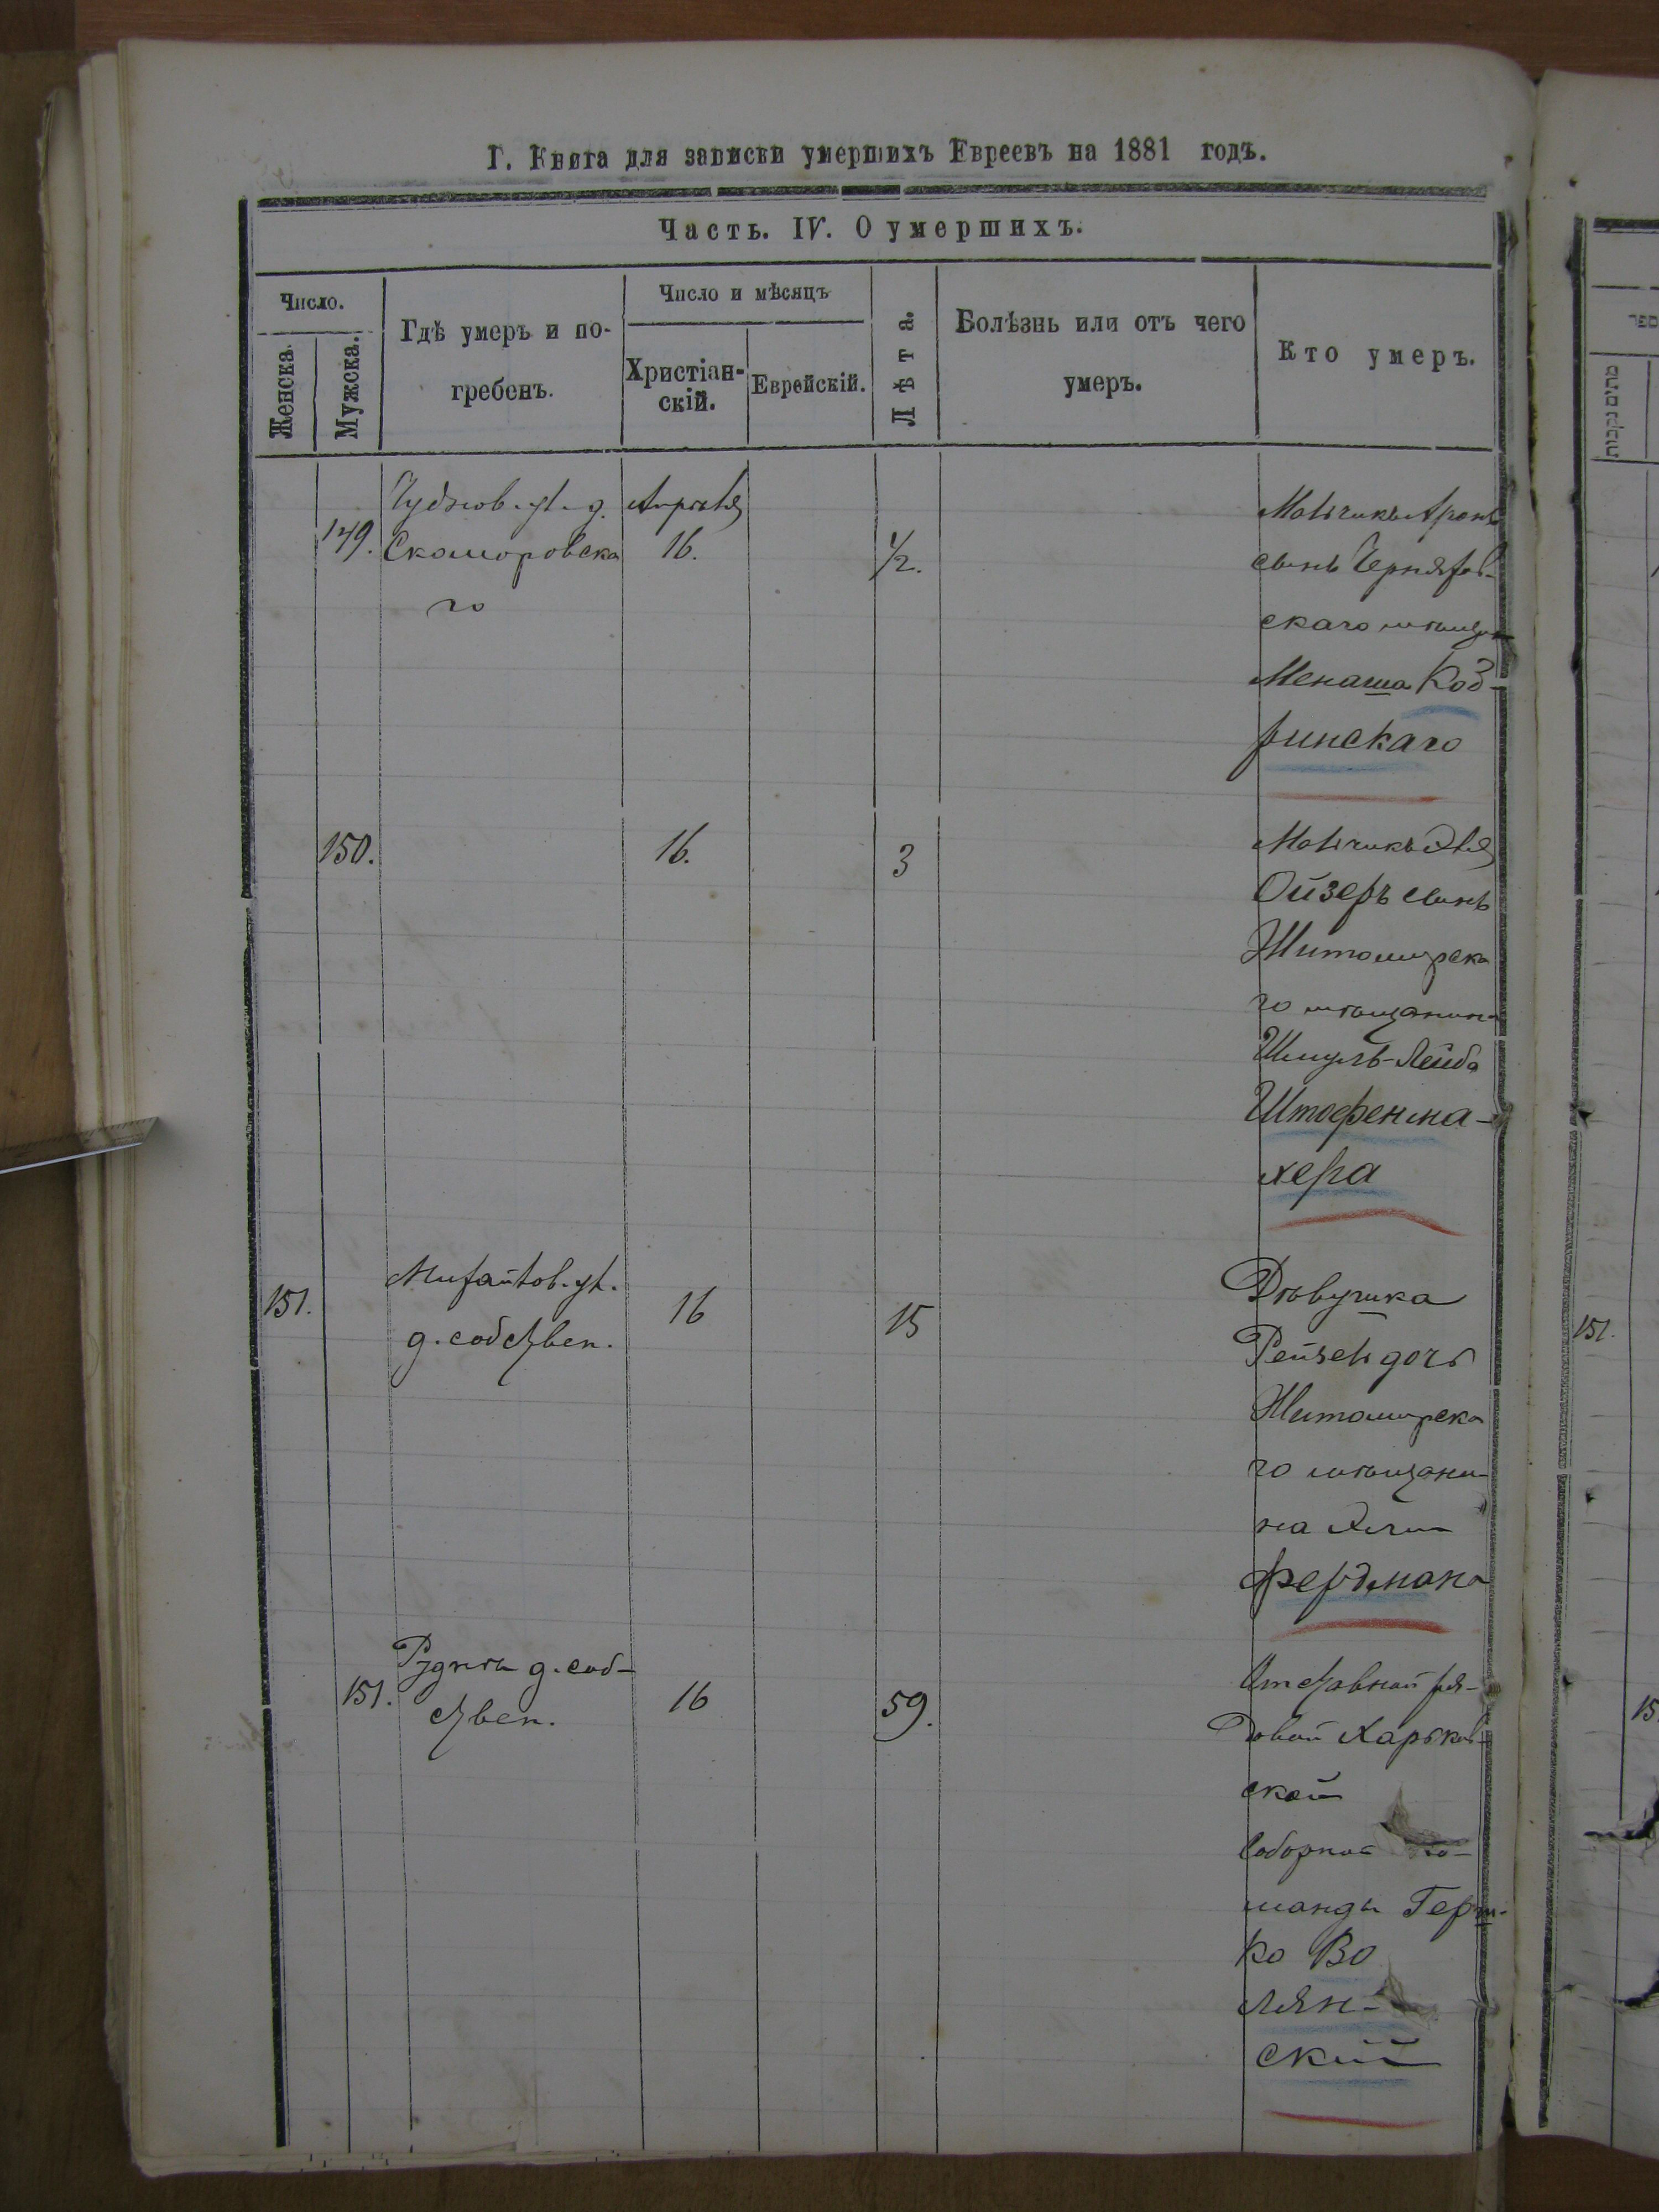 Г. Книга для записки умершихъ Евреевъ на 1881 годъ.
Часть. IV. О умершихъ.
Число.
Женска.
Мужска.
Гдѣ умеръ и по-
гребенъ.
Число и мѣсяцъ
Христіан-
скій.
Еврейскій.
Лѣта.
Болѣзнь или отъ чего
умеръ.
Кто умеръ.
149.
Чуднов. ул. д.
Скоморовска
го
Апрѣля
16.
1/2.
Мальчикъ Аронъ
сынъ Черняхов-
скаго мѣщан
Менаша Код-
ринскаго
150.
16.
3
Мальчикъ Эля
Ойзеръ сынъ
Житомирска
го мѣщанина
Шмуль-Лейба
Штофенма-
хера
151.
Михайлов. ул.
д. собствен.
16
15
Дѣвушка
Рейзель дочь
Житомирска
го мѣщани-
на
Фердмана
151.
Рудня д. соб-
ствен.
16
59.
Отставной ря-
довой Харьков-
ской
Соборной ко-
манды Герш-
ко Во
лян-
ский
151.